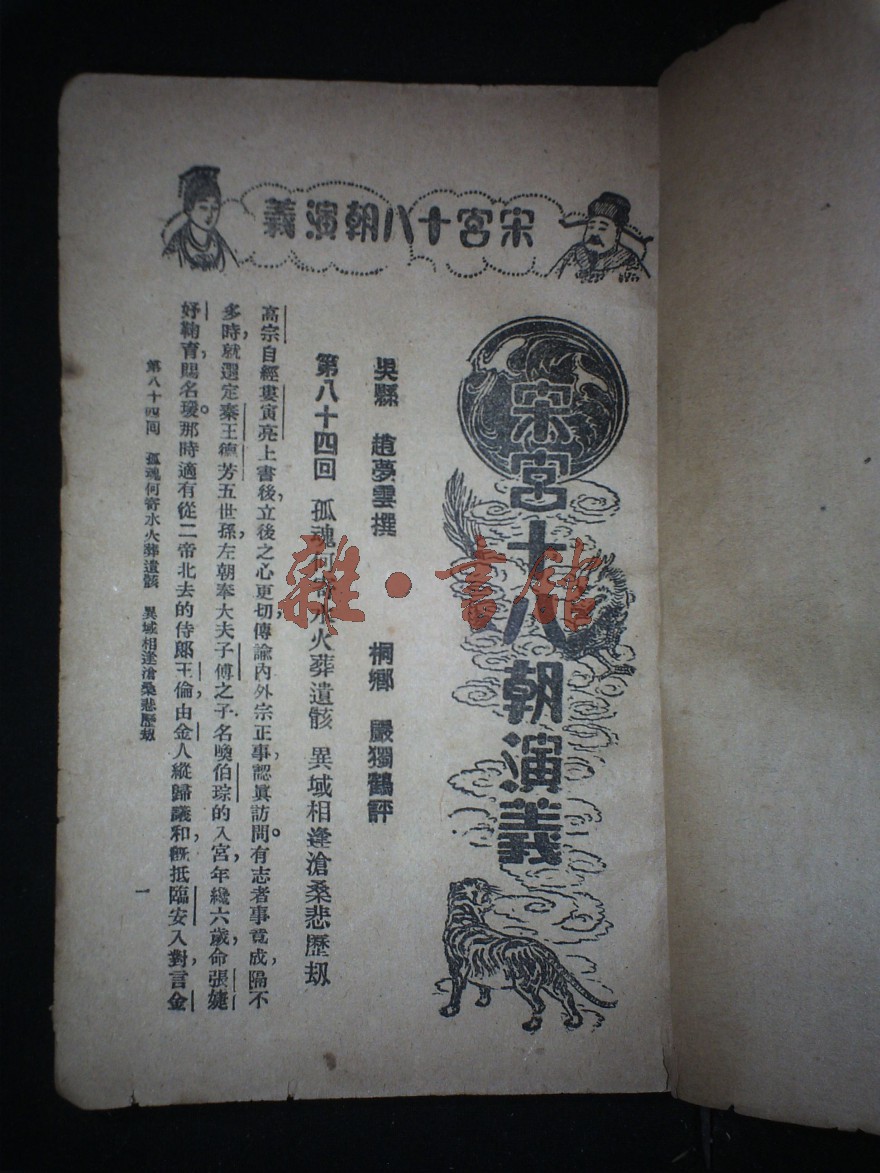 宋宮十八朝演義
宋宮十八朝演義
吳縣 趙夢雲撰 桐鄉 嚴獨鶴評
第八十四回 孤魂何寄水火葬遺骸 異域相逢滄桑悲歷劫
高宗自經婁寅亮上書後,立後之心更切,傳諭內外宗正事,認眞訪問。有志者事竟成,隔不
多時,就選定秦王德芳五世孫,左朝奉大夫子偁之子名喚伯琮的入宮,年纔六歲,命張婕
妤鞠育,賜名瑗。那時適有從二帝北去的侍郎王倫,由金人縱歸議和,旣抵臨安,入對,言金
第八十四回 孤魂何寄水火葬遺骸 異域相逢滄桑悲歷刼
一
雜·書館